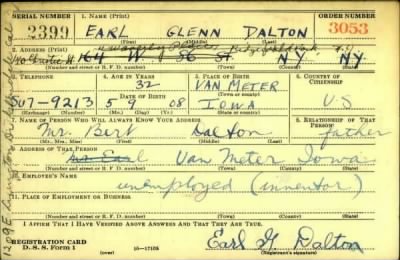 SERIAL NUMBER 1. NAME (Print) ORDER NUMBER
2399 EARL GLENN DALTON 3053
(First) (Middle) (Last)
2. ADDRESS (Print)
164 W. 86 ST NY NY
(Number and street or R. F. D. number) (Town) (County) (State)
3. TELEPHONE 4. AGE IN YEARS 5. PLACE OF BIRTH 6. COUNTRY OF CITIZENSHIP
32 VAN METER
DATE OF BIRTH
SU7-9213 5 9 08 IOWA US
(Mo.) (Day) (Yr.)
7. NAME OF PERSON WHO WILL ALWAYS KNOW YOUR ADDRESS 8. RELATIONSHIP OF THAT PERSON
Mr. Bert Dalton father
(Mr., Mrs., Miss) (First) (Middle) (Last)
9. ADDRESS OF THAT PERSON
Van Meter Iowa
(Number and street or R. F. D. number) (Town) (County) (State)
10. EMPLOYER'S NAME
unemployed (inventor)
11. PLACE OF EMPLOYMENT OR BUSINESS
(Number and street or R. F. D. number) (Town) (County) (State)
I AFFIRM THAT I HAVE VERIFIED ABOVE ANSWERS AND THAT THEY ARE TRUE.
REGISTRATION CARD
D. S. S. Form 1 16-17105 Earl G Dalton
(Registrant's signature)